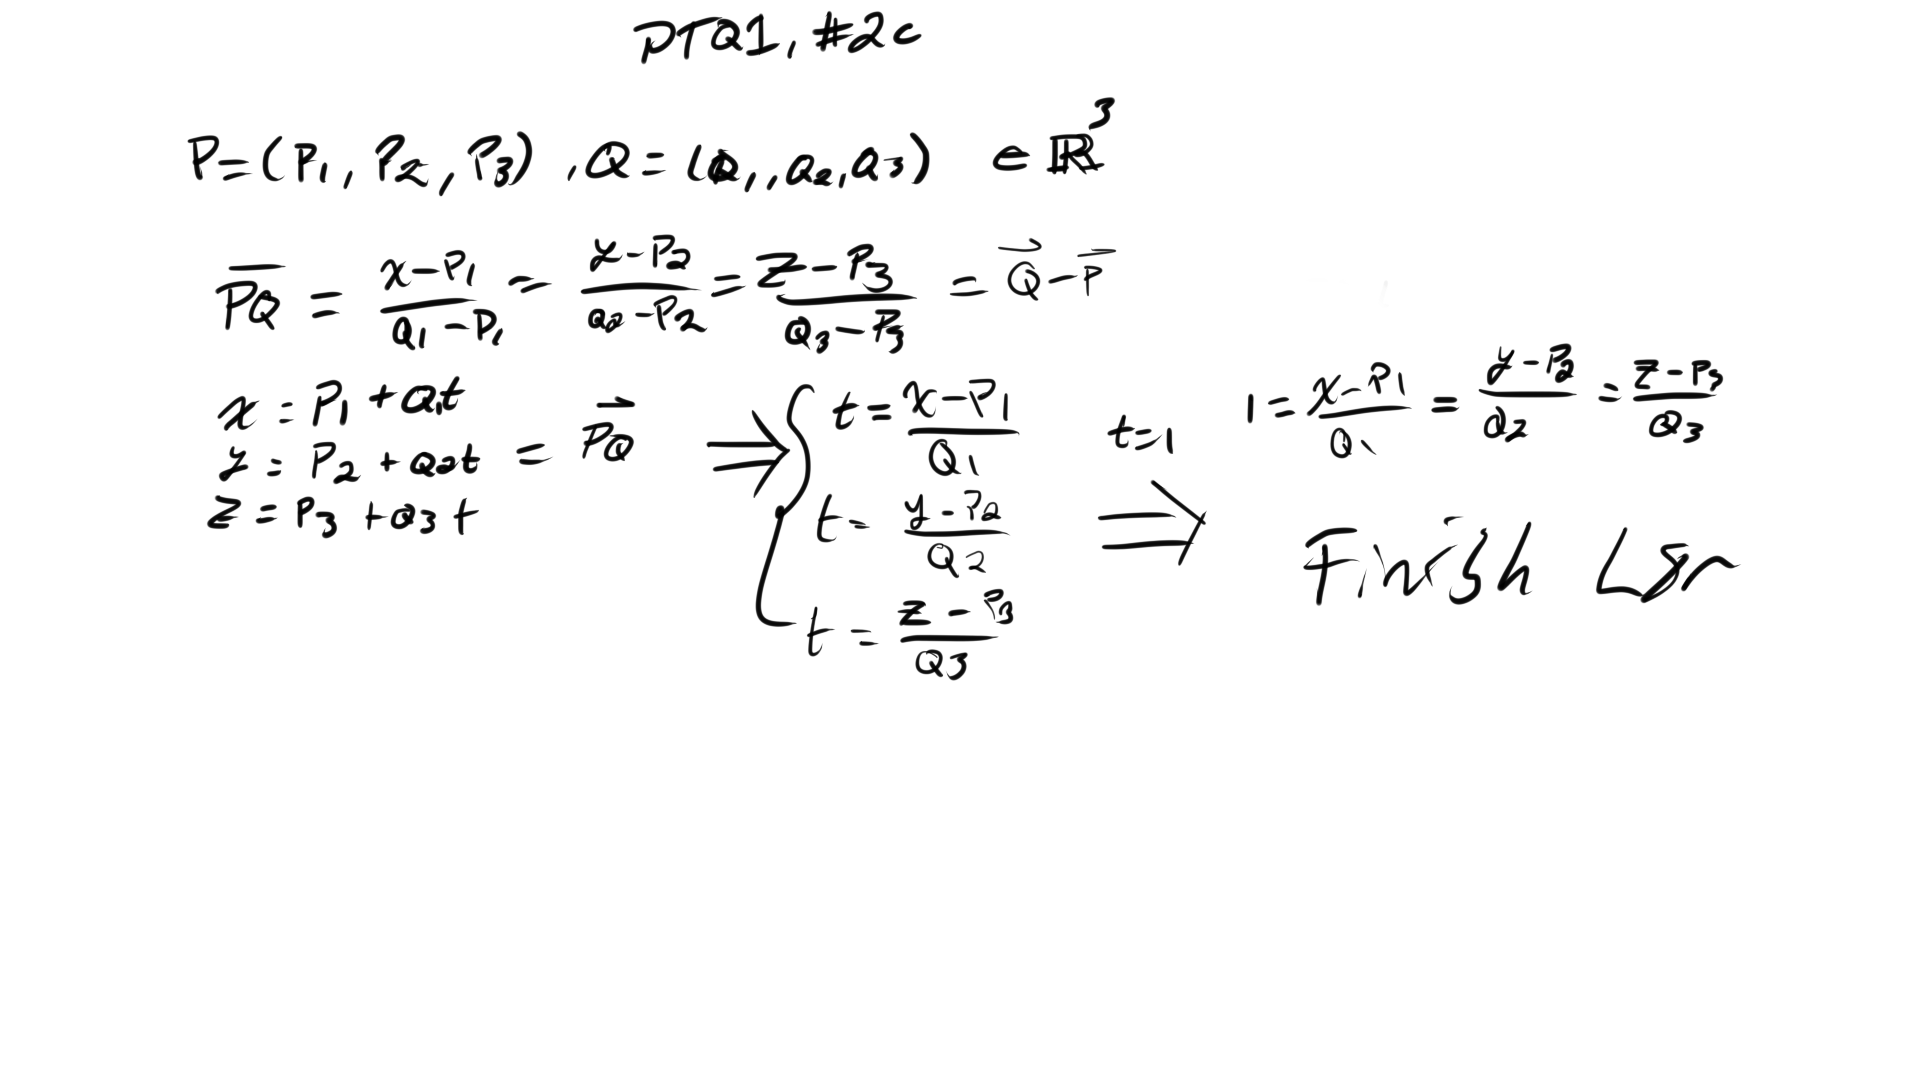 PTQ1, #2c
P=(P₁, P₂, P₃), Q=(Q₁,, Q₂, Q₃) ∈ ℝ³
P̅Q̅ = (x-P₁)/(Q₁-P₁) = (y-P₂)/(Q₂-P₂) = (z-P₃)/(Q₃-P₃) = Q⃗ - P⃗
x = P₁ + Q₁t
y = P₂ + Q₂t = P⃗Q⃗
z = P₃ + Q₃t
⇒ { t = (x-P₁)/Q₁
t = (y-P₂)/Q₂
t = (z-P₃)/Q₃
t=1
⇒
1 = (x-P₁)/Q₁ = (y-P₂)/Q₂ = (z-P₃)/Q₃
Finish